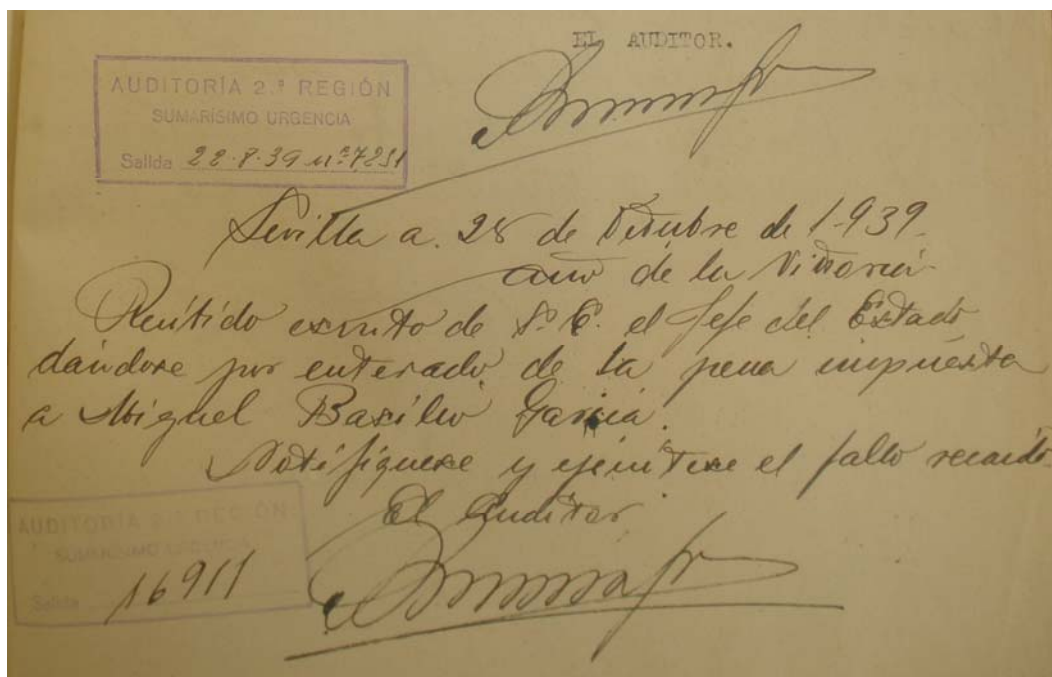 EL AUDITOR.
AUDITORÍA 2.ª REGIÓN
SUMARÍSIMO URGENCIA
Salida 22-8-39 nº 7231
Sevilla a. 28 de Octubre de 1.939.
año de la Victoria
Recibido escrito de S. E. el Jefe del Estado
dándose por enterado de la pena impuesta
a Miguel Basilio García.
Notifíquese y ejecútese el fallo recaído.
El Auditor
AUDITORÍA 2.ª REGIÓN
SUMARÍSIMO URGENCIA
Salida 16911